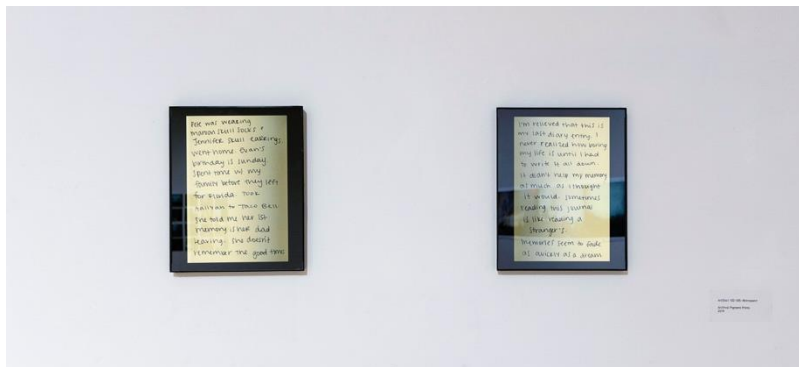 Pete was wearing
skull socks +
Jennifer skull earrings.
Went home. Evan's
birthday is Sunday.
Spent time w/ my
family before they left
for Florida. Took
to Taco Bell
She told me her 1st
memory is her dad
leaving. She doesn't
remember the good times
I'm relieved that this is
my last diary entry. I
never realized how boring
my life is until I had
to write it all down.
It didn't help my memory
as much as I thought
it would. Sometimes
reading this journal
is like reading a
stranger's.
Memories seem to fade
as quickly as a dream